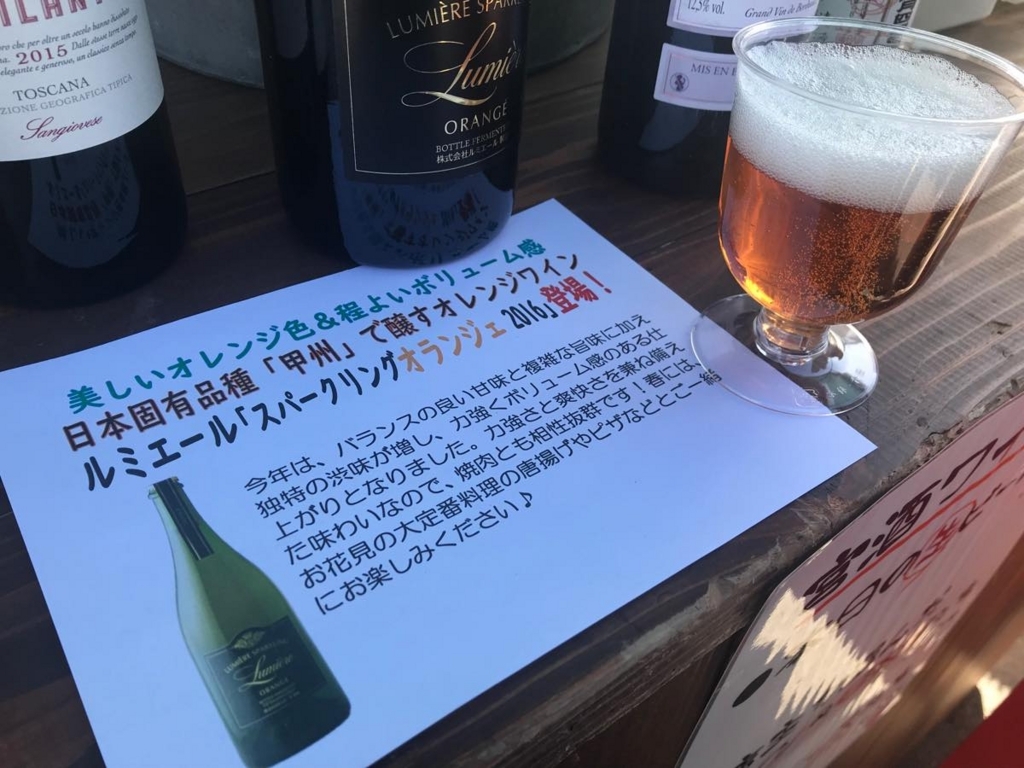 2015
TOSCANA
Sangiovese
LUMIÈRE
Lumière
ORANGE
12,5% vol.
Grand Vin de
MIS EN
美しいオレンジ色&程よいボリューム感
日本固有品種「甲州」で醸すオレンジワイン
ルミエール「スパークリングオランジェ 2016」登場!
今年は、バランスの良い甘味と複雑な旨味に加え
独特の渋味が増し、力強くボリューム感のある仕
上がりとなりました。力強さと爽快さを兼ね備え
た味わいなので、焼肉とも相性抜群です!春には、
お花見の大定番料理の唐揚げやピザなどとご一緒
にお楽しみください♪
LUMIÈRE
Lumière
ORANGE